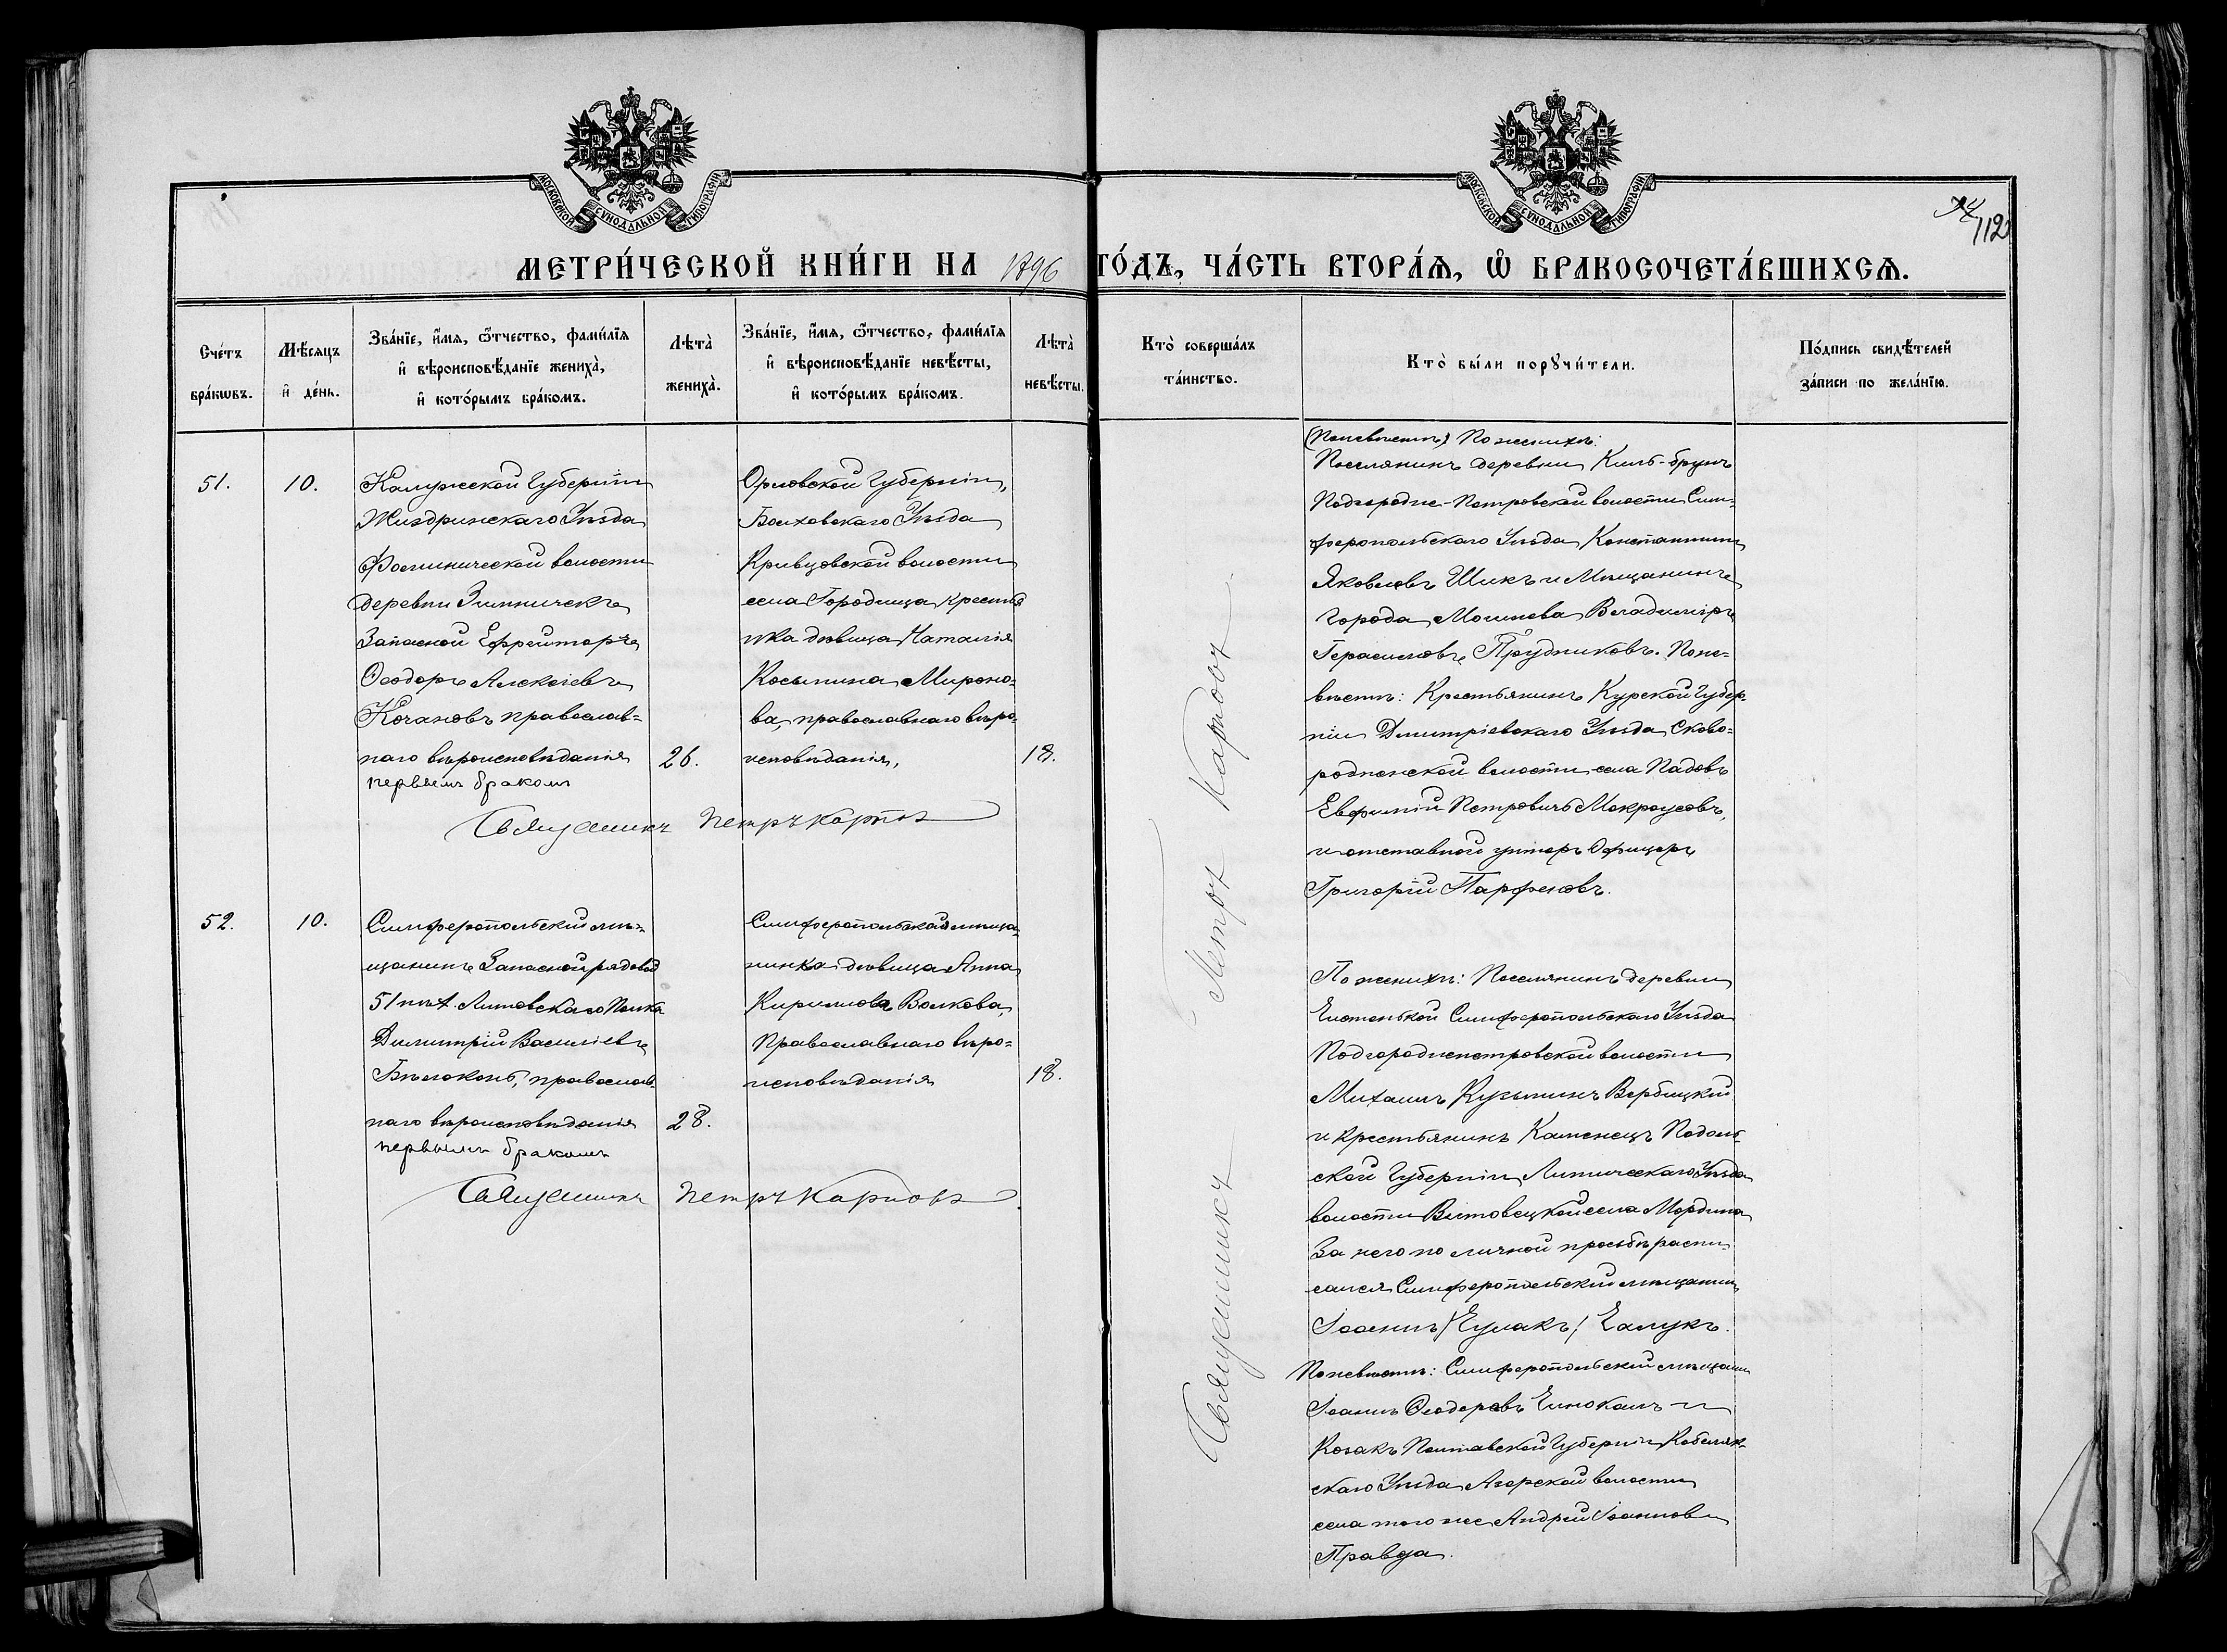 МОСКОВСКОЙ СѴНОДАЛЬНОЙ ТИПОГРАФІИ
МОСКОВСКОЙ СѴНОДАЛЬНОЙ ТИПОГРАФІИ
112
МЕТРИ́ЧЕСКОЙ КНИ́ГИ НА 1896 ГО́ДЪ, ЧА́СТЬ ВТОРА́Ѧ, Ѽ БРАКОСОЧЕТА́ВШИХСѦ.
Сче́тъ
бра́кѡвъ.
Мѣ́сяцъ
и҆ де́нь.
Зва́нїе, и҆́мя, ѻ҆́тчество, фами́лїя
и҆ вѣроисповѣ́данїе жениха̀,
и҆ кото́рымъ бра́комъ.
Лѣта̀
жениха̀.
Зва́нїе, и҆́мя, ѻ҆́тчество, фами́лїя
и҆ вѣроисповѣ́данїе невѣ́сты,
и҆ кото́рымъ бра́комъ.
Лѣта̀
невѣ́сты.
Кто̀ соверша́лъ
та́инство.
Кто̀ бы́ли порꙋчи́тели.
По́дпись свидѣ́телей
за́писи по жела́нїю.
51.
10.
Калужской Губерніи
Жиздринскаго Уѣзда
Фоминической волости
деревни Зимничекъ
Запасной Ефрейторъ
Ѳеодоръ Алексіевъ
Кочановъ православ=
наго вѣроисповѣданія
первымъ бракомъ
26.
Орловской Губерніи,
Болховскаго Уѣзда
Кривцовской волости
села Городища крестья
нка дѣвица Наталія
Косьмина Мироно=
ва, православнаго вѣро=
исповѣданія,
18.
Священникъ Петръ Карповъ
(Поневѣстѣ) По женихѣ:
Поселянинъ деревни Киль-брунъ
Подгородне-Петровской волости Сим=
феропольскаго Уѣзда Константинъ
Яковлевъ Шикъ и Мѣщанинъ
города Могилева Владиміръ
Герасимовъ Прудниковъ. Поне=
вѣстѣ: Крестьянинъ Курской Губер=
ніи Дмитріевскаго Уѣзда Сково=
родненской волости села Падовъ
Евфимій Петровичъ Мокроусовъ,
и отставной унтеръ Офицеръ
Григорій Парфеновъ.
52.
10.
Симферопольскій мѣ=
щанинъ Запасной рядовой
51 пѣх. Литовскаго Полка
Димитрій Василіевъ
Бѣлоконь, православ=
наго вѣроисповѣданія
первымъ бракомъ
28.
Симферопольская мѣща=
нинка дѣвица Анна
Кириллова Волкова,
Православнаго вѣро=
исповѣданія
18.
Священникъ Петръ Карповъ
Священникъ Петръ Карповъ
По женихѣ: Поселянинъ деревни
Симферопольскаго Уѣзда
Подгороднепетровской волости
Михаилъ Кузьминъ Вербицкій
и крестьянинъ Каменецъ Подоль=
ской Губерніи Литинскаго Уѣзда
волости села
За него по личной просьбѣ распи=
сался Симферопольскій мѣщанинъ
Іоаннъ
Поневѣстѣ: Симферопольскій мѣщанинъ
Іоаннъ Ѳеодоровъ и
Козакъ Полтавской Губерніи Кобеляк=
скаго Уѣзда волости
села того же Андрей Іоанновъ
Правда.